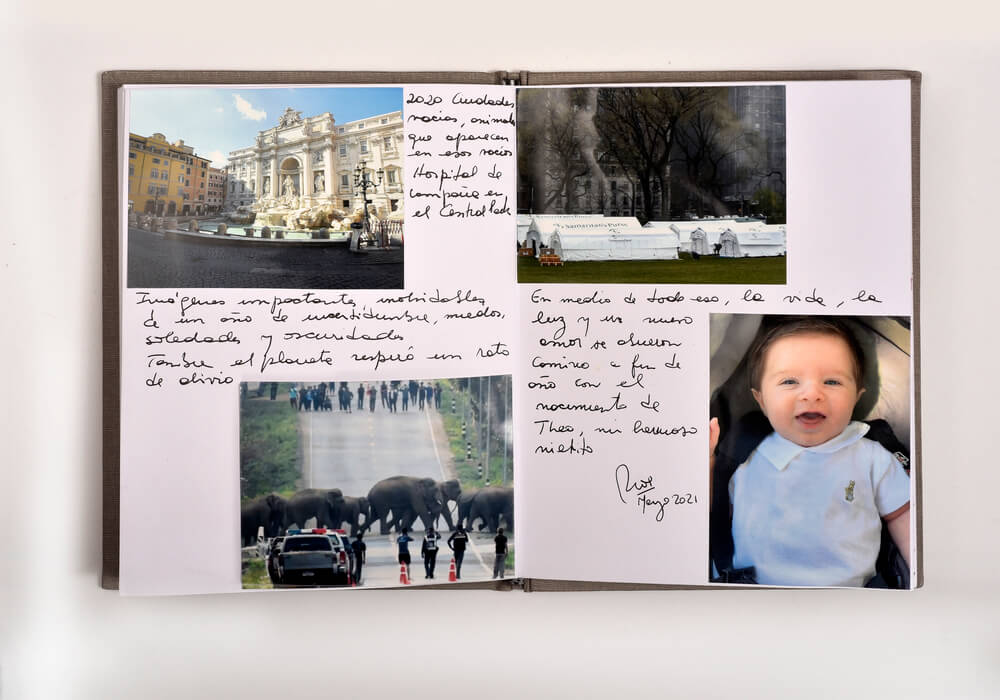 2020 Ciudades
vacias, animales
que aparecen
en esos vacios
Hospital de
campaña en
el Central Park
Imágenes impactantes, inolvidables
de un año de incertidumbre, miedos,
soledades y oscuridades
Tambien el planeta respiró un rato
de alivio
Samaritan's Purse
En medio de todo eso, la vida, la
luz y un nuevo
amor se abrieron
camino a fin de
año con el
nacimiento de
Theo, mi hermoso
nietito
Mayo 2021